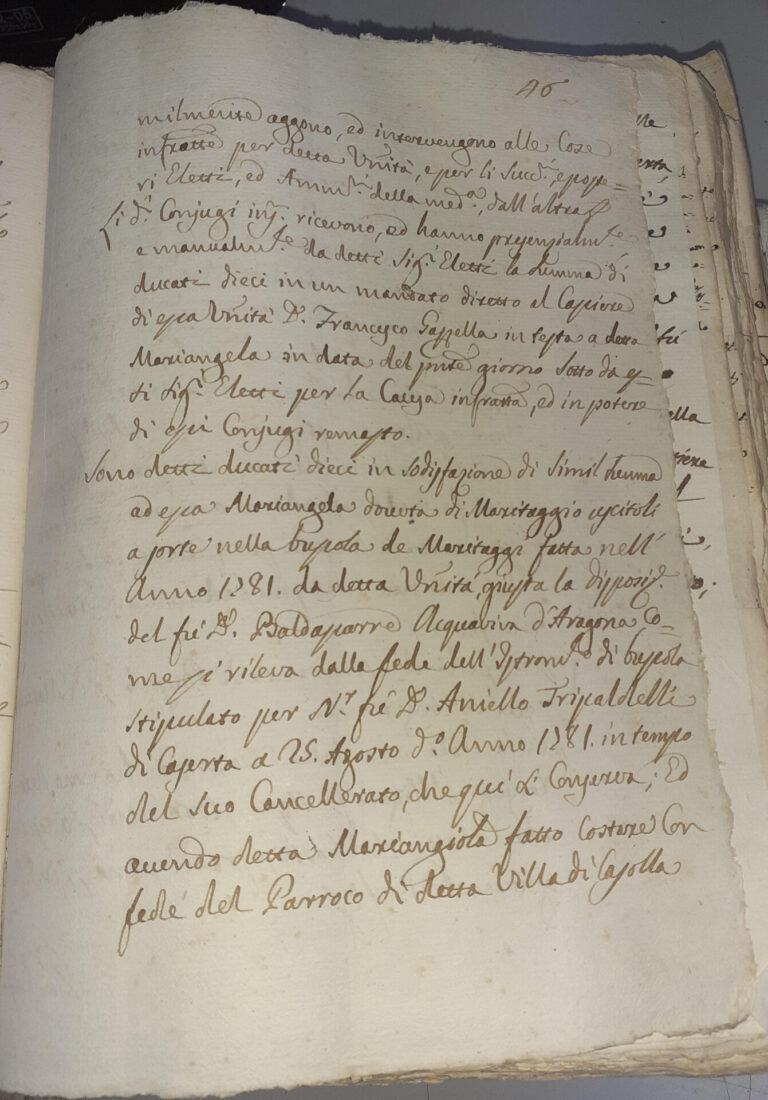 46
milmente aggono, ed intervengono alle Cose
infratte per detta Vñità, e per li Succ.ri, e poste=
ri Eletti, ed Amm.ri della med.a, dall'altra
Li d.i Conjugi inf.i ricevono, ed hanno presenzialm.te
e manualm.te da detti Sig.i Eletti la summa di
ducati dieci in un mandato diretto al Cassiere
di essa Vñità D. Francesco Gazzella in testa a detta
Mariangela in data del pñte giorno Sotto da es=
si Sig.i Eletti per la Causa infratta, ed in potere
di essi Conjugi remasto.
Sono detti ducati dieci in sodisfazione di simil summa
ad essa Mariangela dovuta di Maritaggio uscitoli
a sorte nella bussola de Maritaggi fatta nell'
Anno 1781. da detta Vñità, giusta la disposiz.e
del fù D. Baldassarre Acquaviva d'Aragona Co-
me si rileva dalla fede dell'Istrom.to di bussola
stipulato per N.r fù D. Aniello Tripaldelli
di Caserta a 25. Agosto d.o Anno 1781. in tempo
del suo Cancellerato, che quì si Conserva; Ed
avendo detta Mariangiola fatto Costare Con
fede del Parroco di detta Villa di Casolla